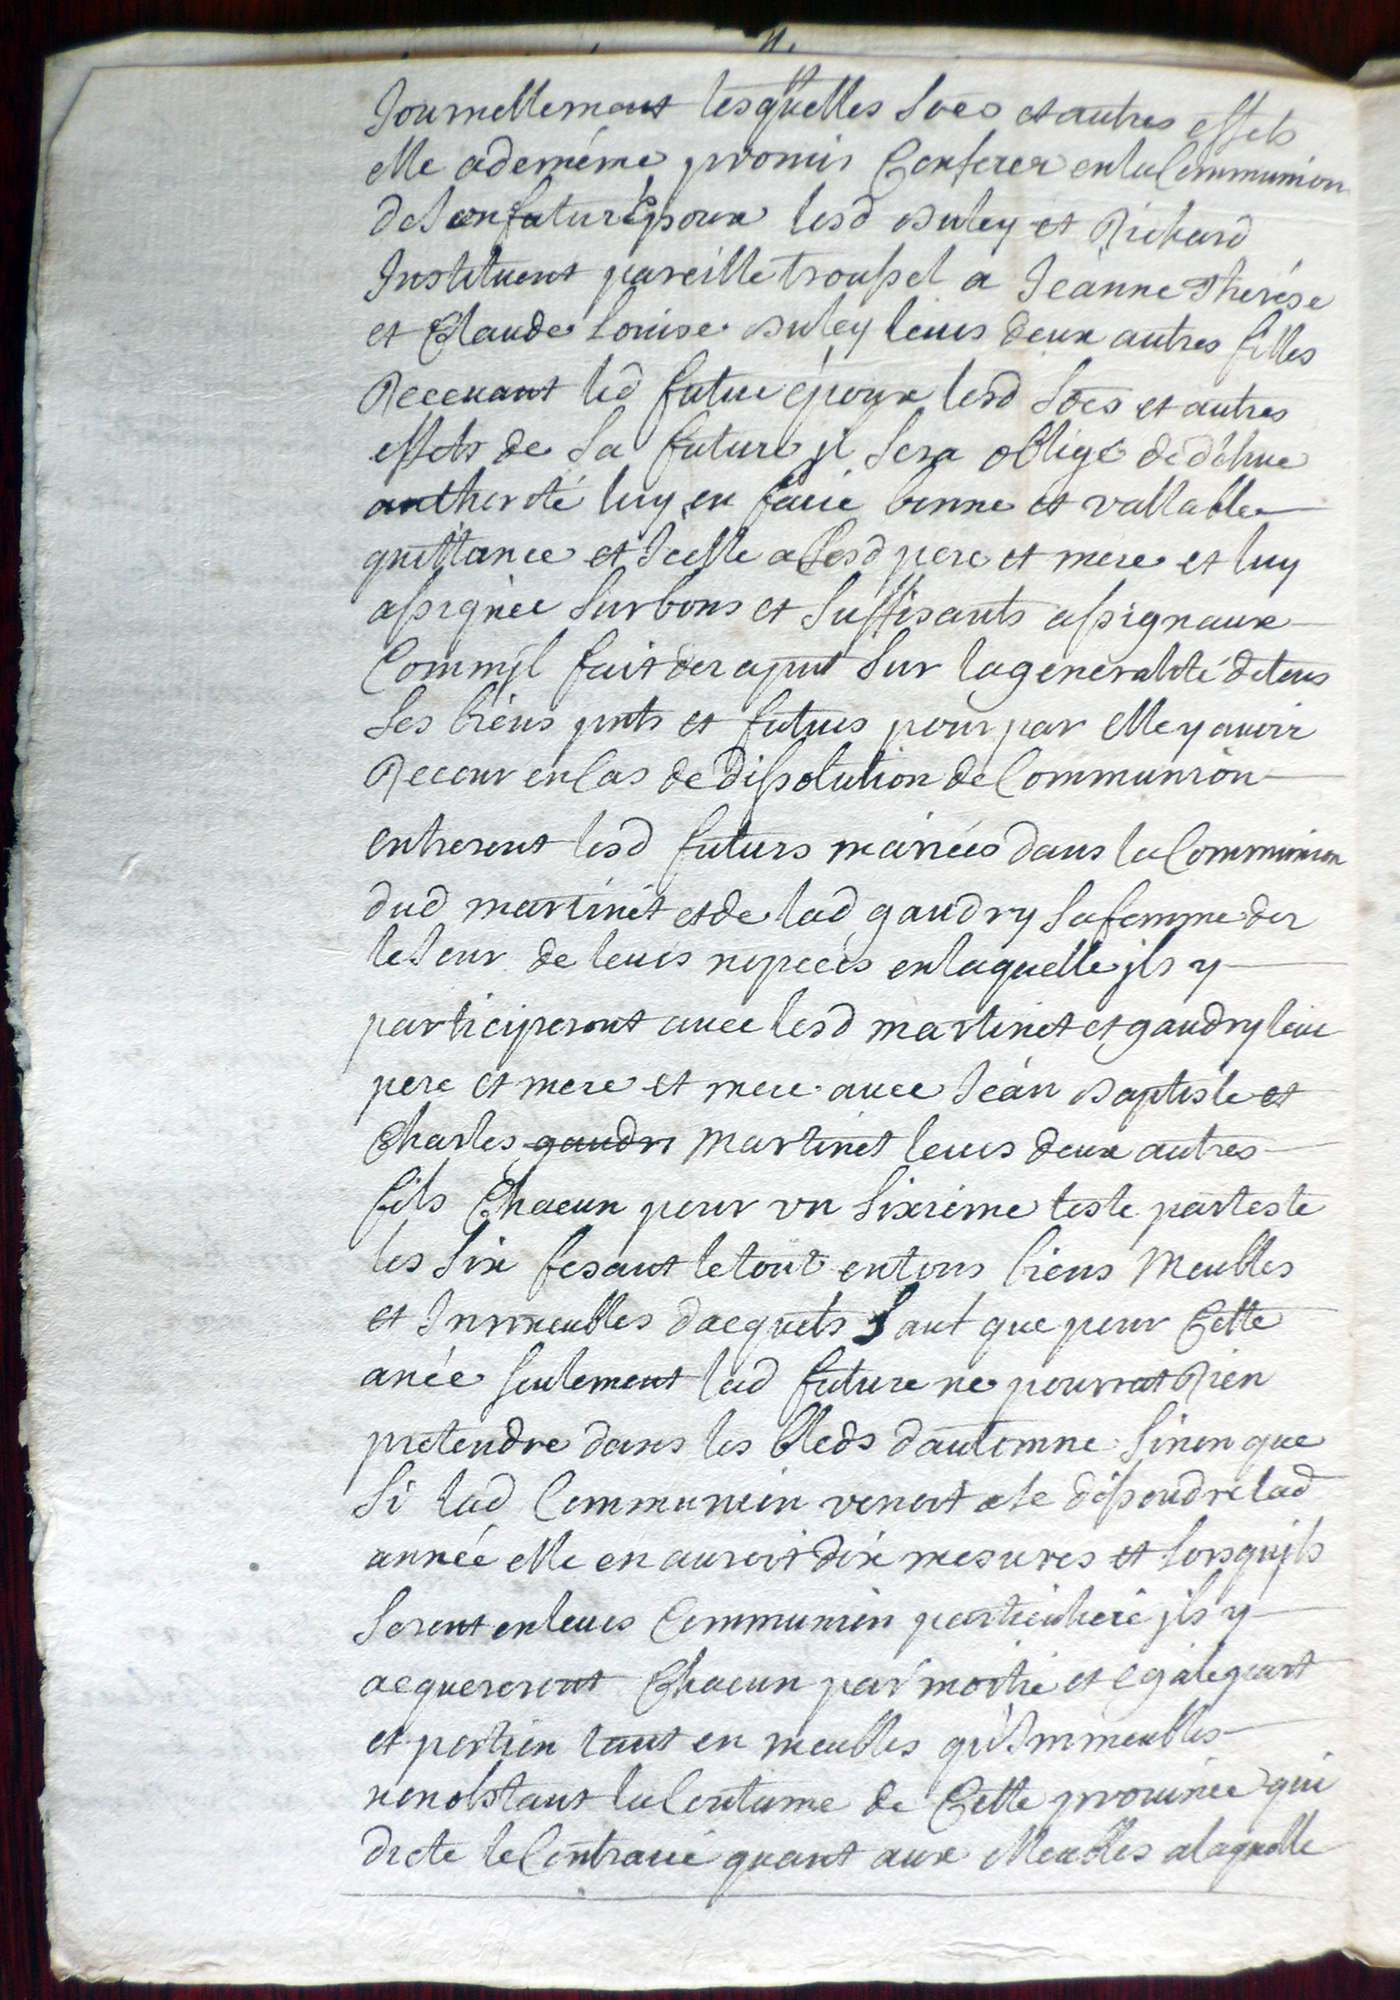 Journellement lesquelles soes et autres effets
elle a deméme promis Conferer en la Communion
de son futur Epoux lesd duley et Richard
Instituent pareille troussel a Jeanne Therése
et Claude Louise duley leurs deux autres filles
Recevant led futur époux lesd soes et autres
effets de sa future jl sera obligé de
authorité luy en faire bonne et vallable
quittance et Icelle a lesd pere et mere et luy
assignée sur bons et suffisants assignaux
Commjl fait der apnt sur la generalité de tous
ses biens pnts et futurs pour par elle y avoir
Recour en Cas de dissolution de Communion
entreront lesd futurs mariées dans la Communion
dud martinet et de lad gaudry sa femme der
le Jour de leurs nopcees en laquelle jls y
participeront avec lesd martinet et gaudry leur
pere et mere et mere avec Jean Baptiste et
Charles gaudri Martinet leurs deux autres
fils Chacun pour un sixiéme teste par teste
les six fesant le tout en tous biens Meubles
et Immeubles dacquets sauf que pour Cette
anée seulement lad future ne pourrat Rien
pretendre dans les bleds dautomne sinon que
si lad Communion venoit a se dissoudre lad
année elle en auroit dix mesures et lorsqujls
seront en leurs Communion particuliere jls y
acquereront Chacun par moitié et egale part
et portion tant en meubles qu'Immeubles
nonobstant la Coutume de Cette province qui
dicte le Contraire quant aux Meubles a laquelle